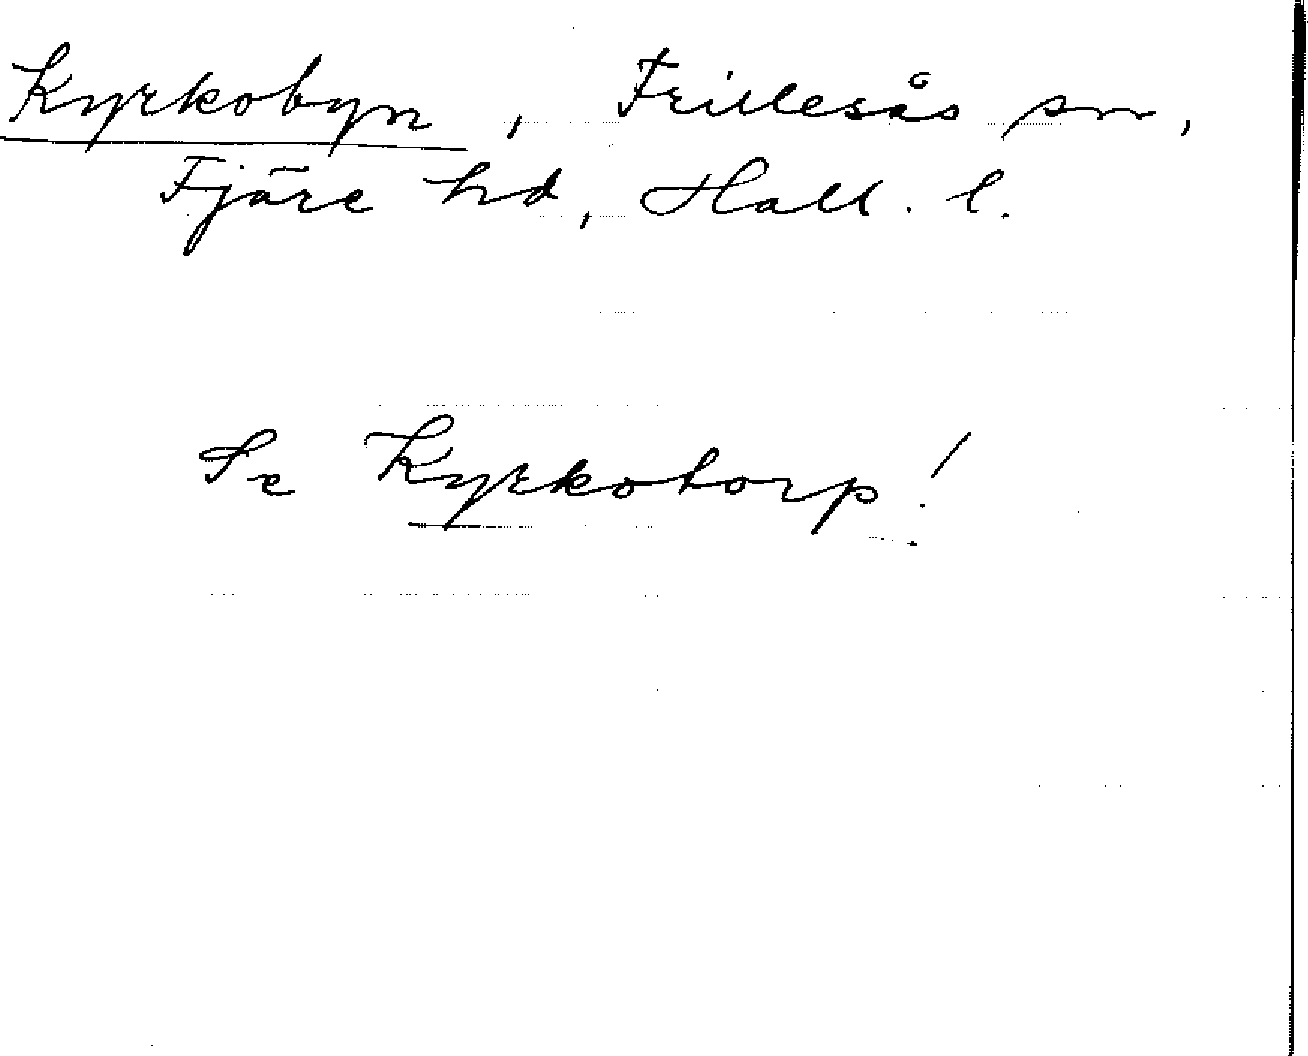 Kyrkobyn, Frillesås sn,
Fjäre hd, Hall. l.
Se Kyrkotorp!